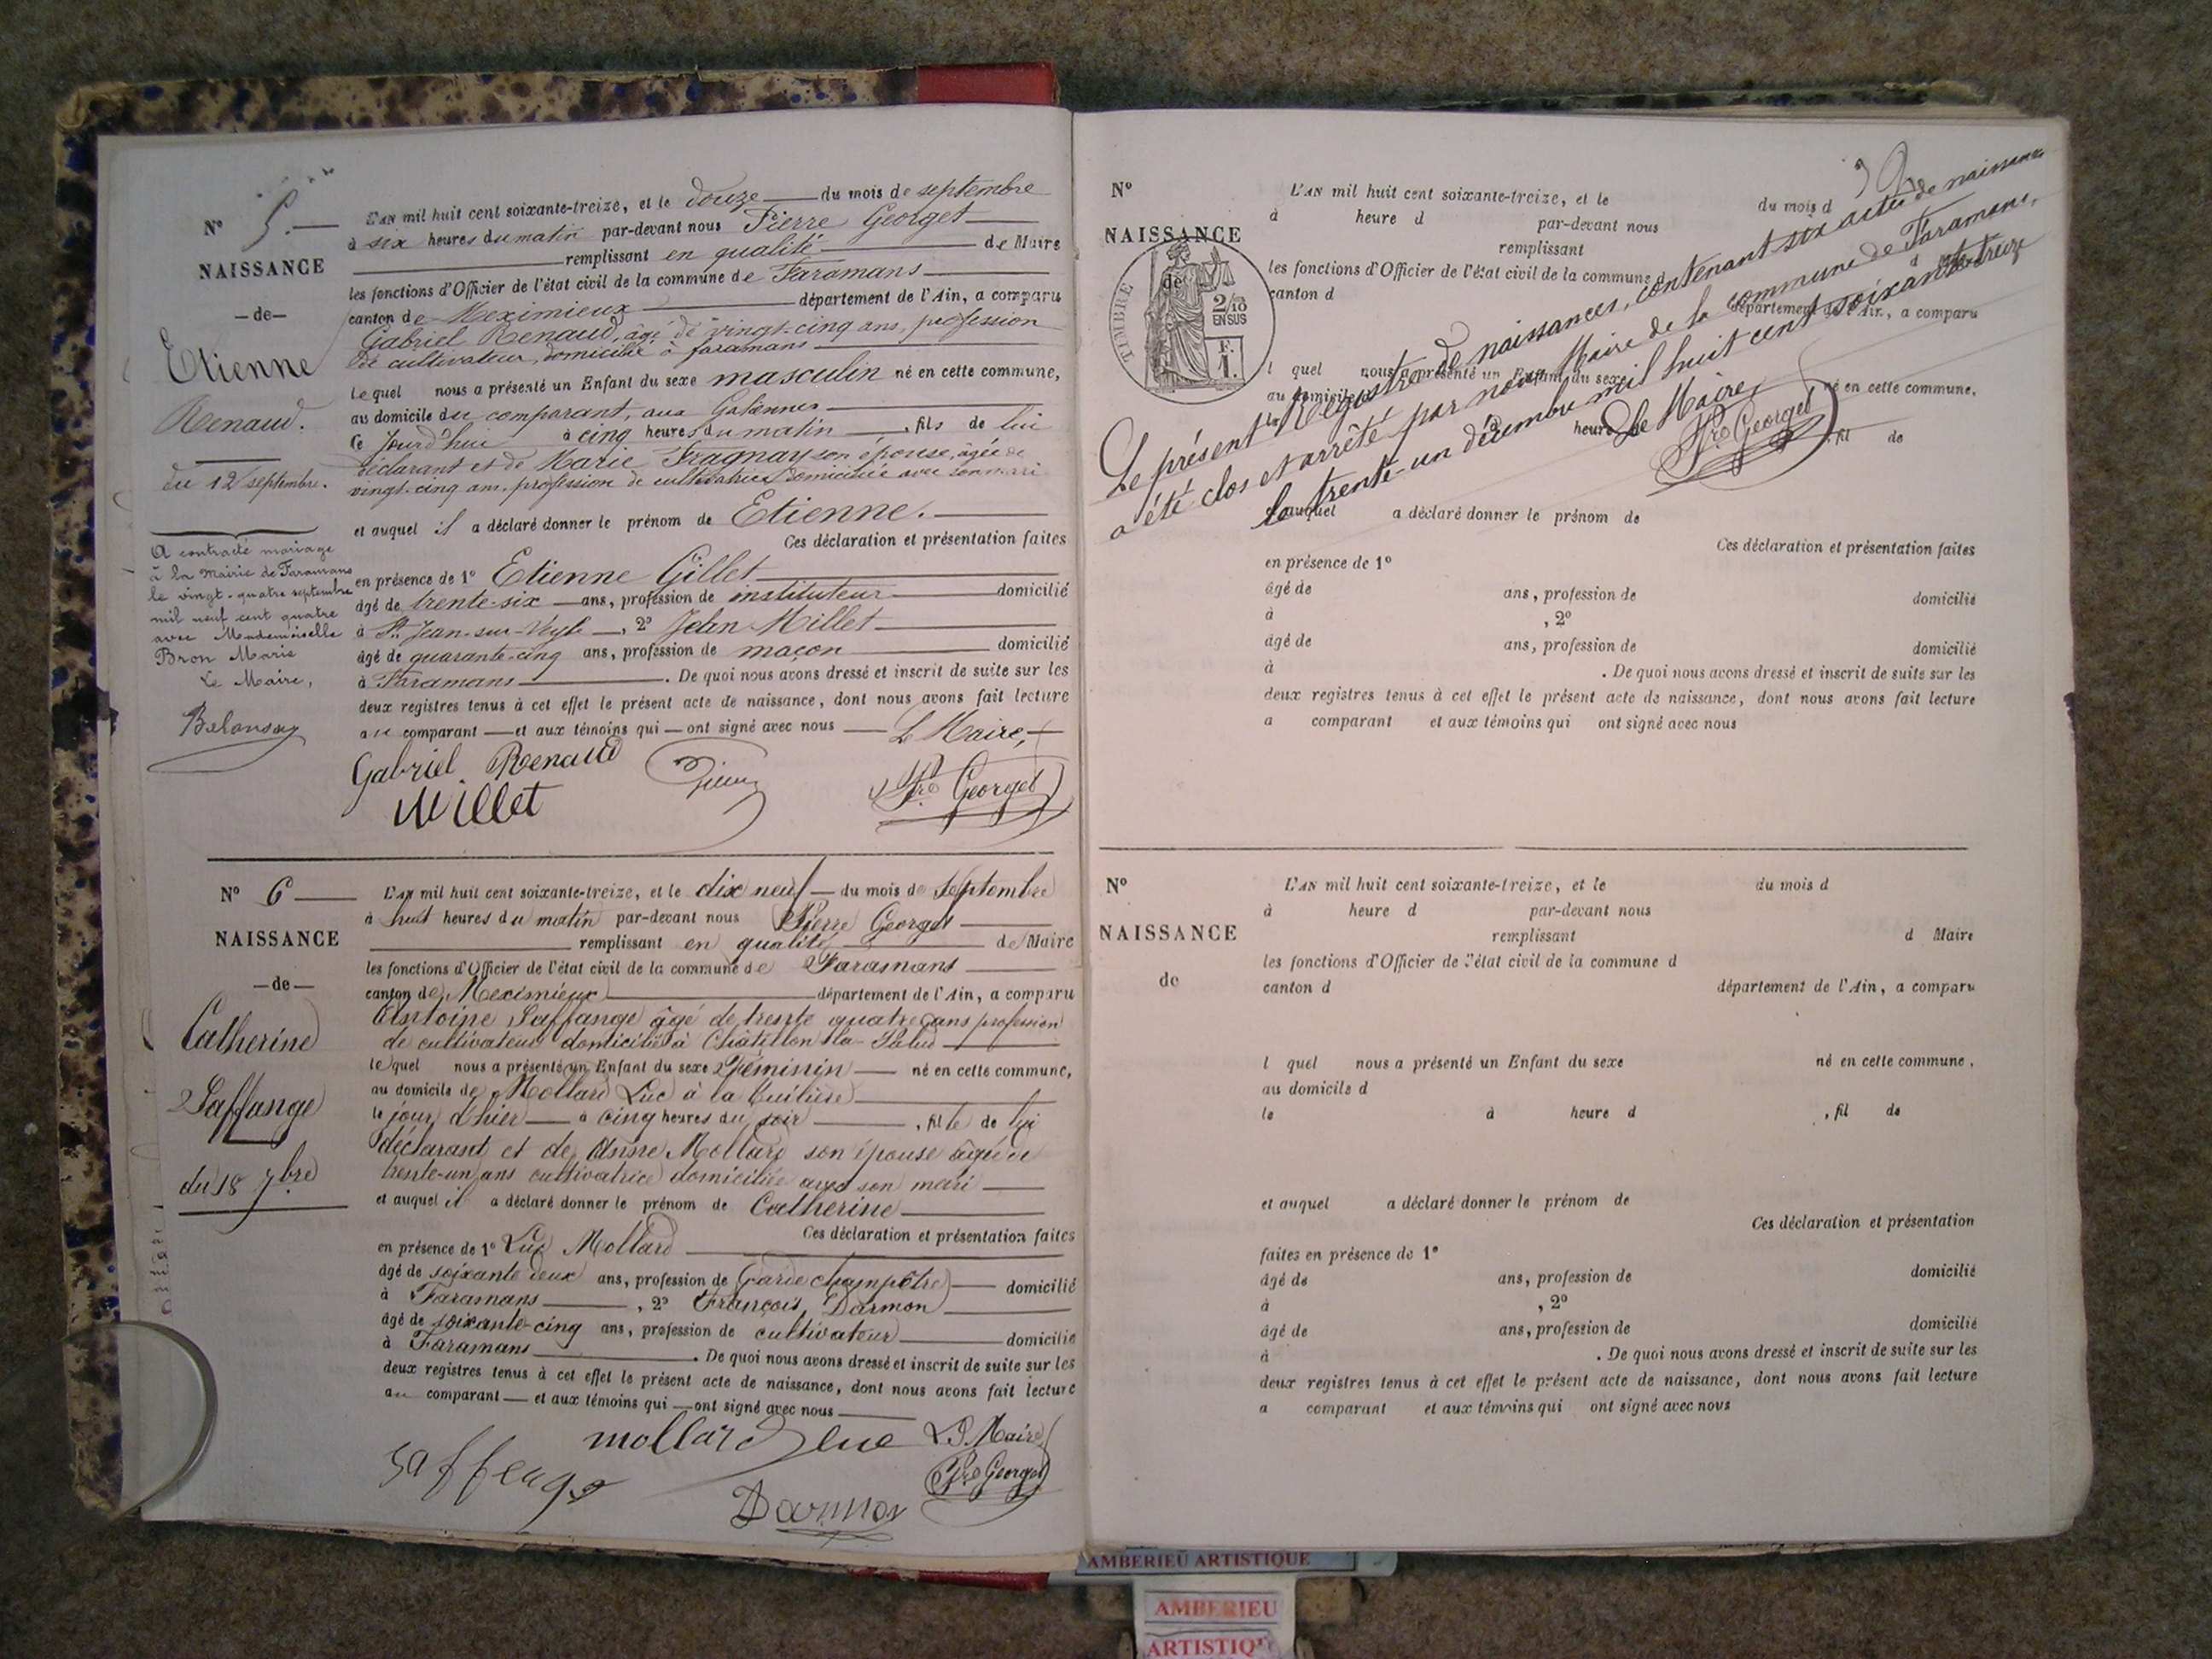 N° 5.
NAISSANCE
— de —
Etienne
Renaud.
du 12 septembre.
A contracté mariage
à la Mairie de Faramans
le vingt-quatre septembre
mil neuf cent quatre
avec Mademoiselle
Bron Marie
Le Maire,
L'AN mil huit cent soixante-treize, et le douze du mois de septembre
à six heures du matin par-devant nous Pierre Georget
remplissant en qualité de Maire
les fonctions d'Officier de l'état civil de la commune de Faramans
canton de Meximieux département de l'Ain, a comparu
Gabriel Renaud, âgé de vingt-cinq ans, profession
de cultivateur, domicilié à faramans
lequel nous a présenté un Enfant du sexe masculin né en cette commune,
au domicile du comparant, aux
ce jourd'hui à cinq heures du matin, fils de lui
déclarant et de Marie Fragnay son épouse, âgée de
vingt-cinq ans, profession de cultivatrice domiciliée avec son mari
et auquel il a déclaré donner le prénom de Etienne.
Ces déclaration et présentation faites
en présence de 1° Etienne Gillet
âgé de trente-six ans, profession de instituteur domicilié
à St Jean-sur-Veyle, 2° Jean Millet
âgé de quarante-cinq ans, profession de maçon domicilié
à Faramans. De quoi nous avons dressé et inscrit de suite sur les
deux registres tenus à cet effet le présent acte de naissance, dont nous avons fait lecture
au comparant — et aux témoins qui — ont signé avec nous — Le Maire,
Gabriel Renaud
Pre Georget
Millet
N° 6
NAISSANCE
— de —
Catherine
Saffange
du 18 7bre
L'AN mil huit cent soixante-treize, et le dix neuf — du mois de septembre
à huit heures du matin par-devant nous Pierre Georget
remplissant en qualité de Maire
les fonctions d'Officier de l'état civil de la commune de Faramans
canton de Meximieux département de l'Ain, a comparu
Antoine Saffange âgé de trente quatre ans profession
de cultivateur domicilié à Châtillon la Palud
lequel nous a présenté un Enfant du sexe Féminin — né en cette commune,
au domicile de Mollard Luc à la Tuilière
le jour d'hier — à cinq heures du soir, fille de lui
déclarant et de Anne Mollard son épouse âgée de
trente-un ans cultivatrice domiciliée avec son mari
et auquel il a déclaré donner le prénom de Catherine
Ces déclaration et présentation faites
en présence de 1° Luc Mollard
âgé de soixante deux ans, profession de Garde champêtre — domicilié
à Faramans, 2° François Darmon
âgé de soixante-cinq ans, profession de cultivateur domicilié
à Faramans. De quoi nous avons dressé et inscrit de suite sur les
deux registres tenus à cet effet le présent acte de naissance, dont nous avons fait lecture
au comparant — et aux témoins qui — ont signé avec nous
mollard luc Le Maire
Saffange Pre Georget
Darmon
N°
NAISSANCE
de
TIMBRE
2/10
EN SUS
F.
1.
L'AN mil huit cent soixante-treize, et le du mois d
à heure d par-devant nous
remplissant d Maire
les fonctions d'Officier de l'état civil de la commune d
canton d département de l'Ain, a comparu
l quel nous a présenté un Enfant du sexe né en cette commune,
au domicile d
le à heure d , fil de
Le présent Registre de naissances, contenant six actes de naissance
a été clos et arrêté par nous Maire de la commune de Faramans,
le trente-un décembre mil huit cent soixante-treize
Le Maire,
Pre Georget
et auquel a déclaré donner le prénom de
Ces déclaration et présentation faites
en présence de 1°
âgé de ans, profession de domicilié
à , 2°
âgé de ans, profession de domicilié
à . De quoi nous avons dressé et inscrit de suite sur les
deux registres tenus à cet effet le présent acte de naissance, dont nous avons fait lecture
a comparant et aux témoins qui ont signé avec nous
N°
NAISSANCE
de
L'AN mil huit cent soixante-treize, et le du mois d
à heure d par-devant nous
remplissant d Maire
les fonctions d'Officier de l'état civil de la commune d
canton d département de l'Ain, a comparu
l quel nous a présenté un Enfant du sexe né en cette commune,
au domicile d
le à heure d , fil de
et auquel a déclaré donner le prénom de
Ces déclaration et présentation
faites en présence de 1°
âgé de ans, profession de domicilié
à , 2°
âgé de ans, profession de domicilié
à . De quoi nous avons dressé et inscrit de suite sur les
deux registres tenus à cet effet le présent acte de naissance, dont nous avons fait lecture
a comparant et aux témoins qui ont signé avec nous
AMBERIEU ARTISTIQUE
AMBERIEU
ARTISTIQUE